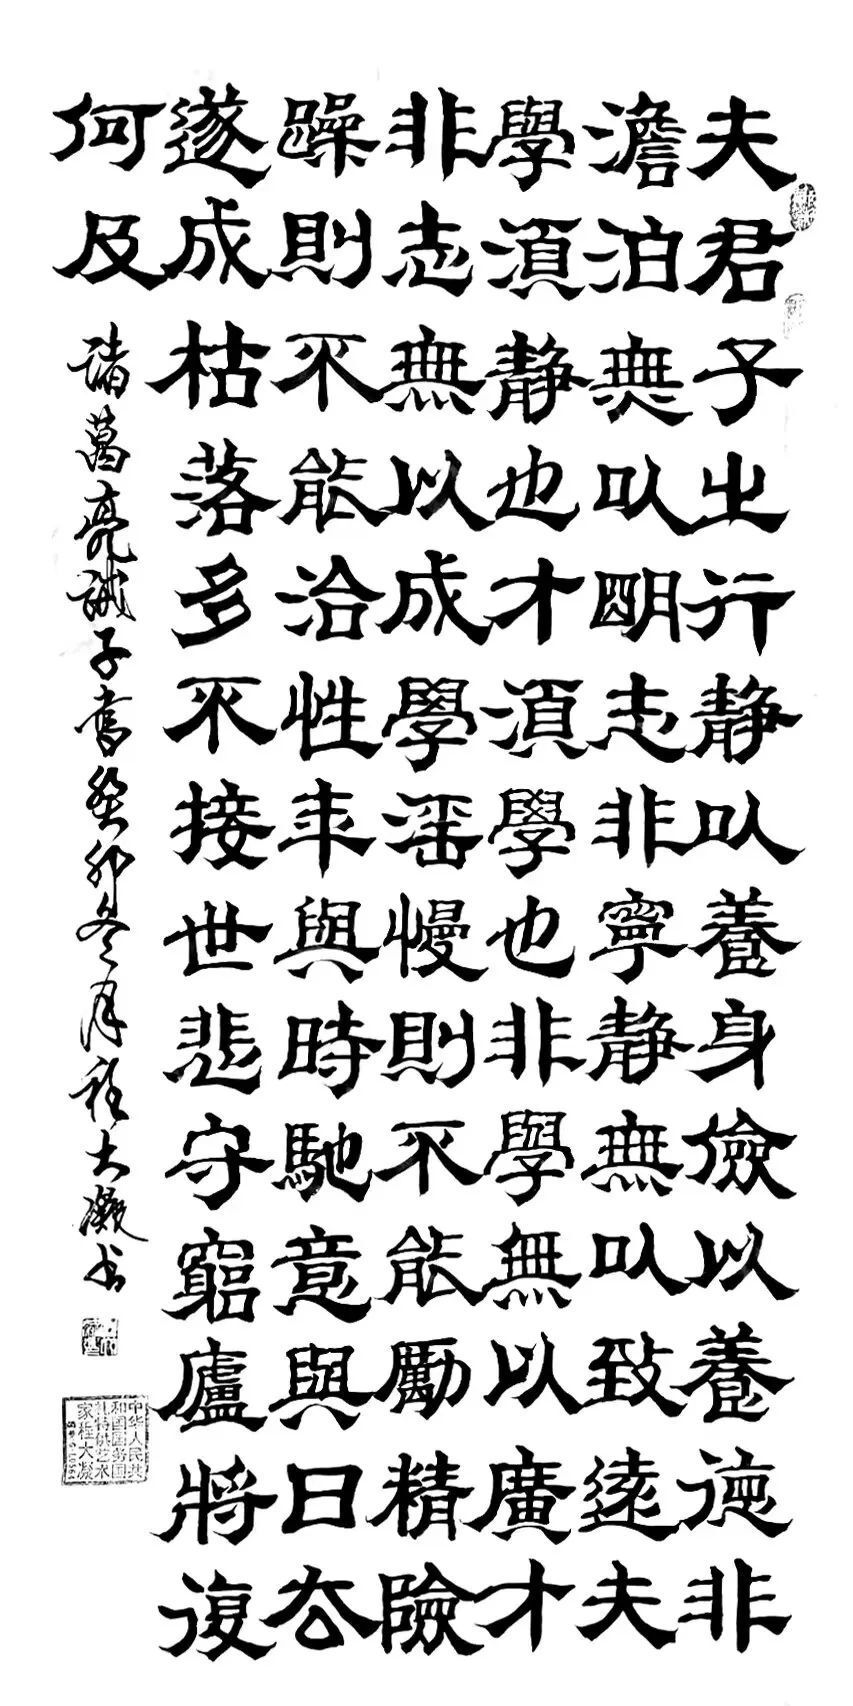 夫君子之行静以養身儉以養德非
澹泊無以明志非寧静無以致遠夫
學須静也才須學也非學無以廣才
非志無以成學滛慢則不能勵精險
躁則不能治性年與時馳意與日去
遂成枯落多不接世悲守窮廬將復
何及
諸葛亮誡子書癸卯冬月程大凝书
中华人民共
和国国务国
礼特供艺术
家程大凝